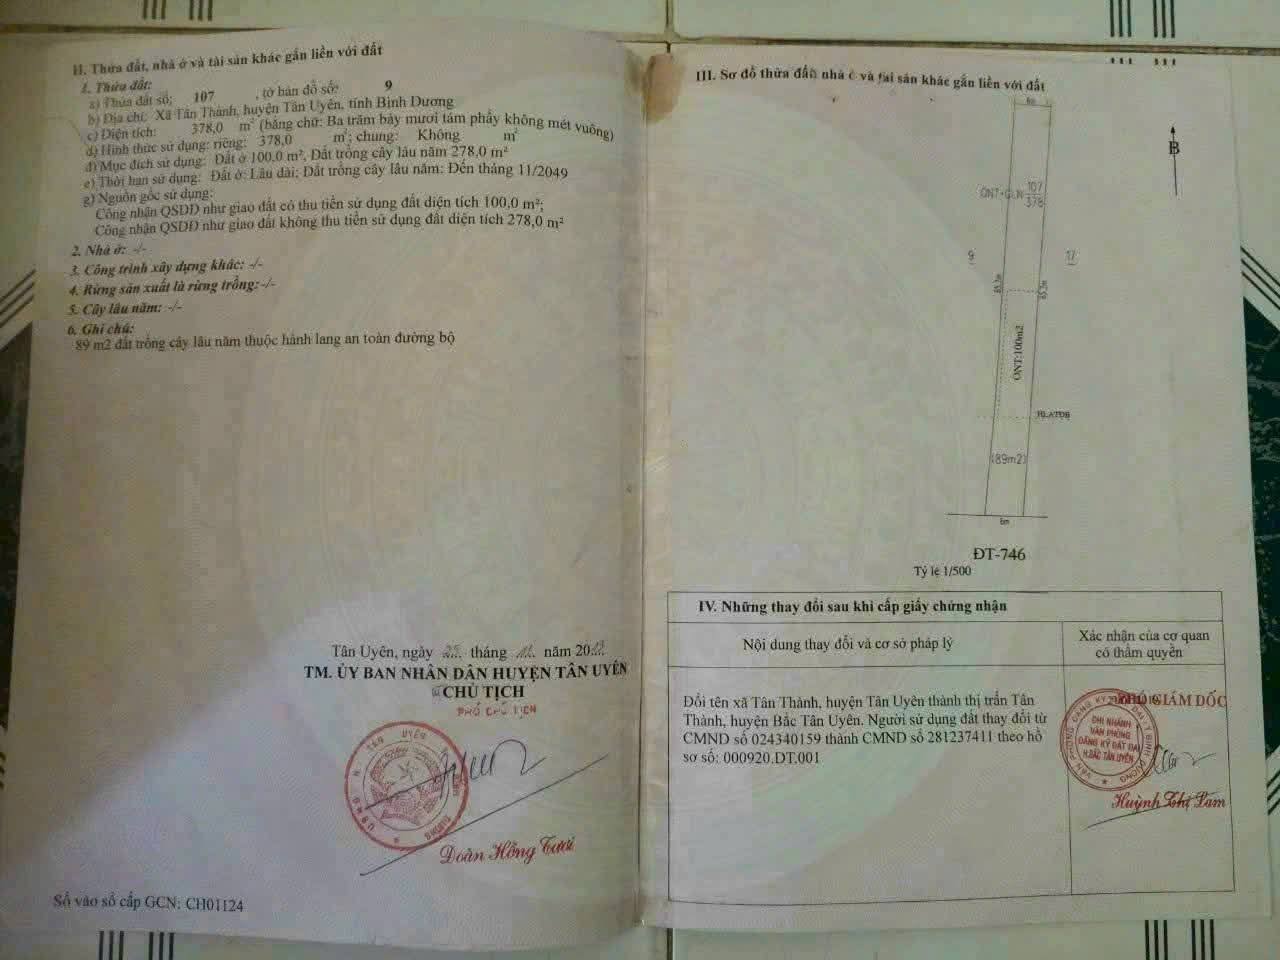 II. Thửa đất, nhà ở và tài sản khác gắn liền với đất
1. Thửa đất:
a) Thửa đất số: 107 , tờ bản đồ số: 9
b) Địa chỉ: Xã Tân Thành, huyện Tân Uyên, tỉnh Bình Dương
c) Diện tích: 378,0 m² (bằng chữ: Ba trăm bảy mươi tám phẩy không mét vuông)
d) Hình thức sử dụng: riêng: 378,0 m²; chung: Không m²
đ) Mục đích sử dụng: Đất ở 100,0 m², Đất trồng cây lâu năm 278,0 m²
e) Thời hạn sử dụng: Đất ở: Lâu dài; Đất trồng cây lâu năm: Đến tháng 11/2049
g) Nguồn gốc sử dụng:
Công nhận QSDĐ như giao đất có thu tiền sử dụng đất diện tích 100,0 m²;
Công nhận QSDĐ như giao đất không thu tiền sử dụng đất diện tích 278,0 m²
2. Nhà ở: -/-
3. Công trình xây dựng khác: -/-
4. Rừng sản xuất là rừng trồng: -/-
5. Cây lâu năm: -/-
6. Ghi chú:
89 m2 đất trồng cây lâu năm thuộc hành lang an toàn đường bộ
Tân Uyên, ngày tháng năm 20
TM. ỦY BAN NHÂN DÂN HUYỆN TÂN UYÊN
CHỦ TỊCH
PHÓ CHỦ TỊCH
Đoàn Hồng Tươi
Số vào sổ cấp GCN: CH01124
III. Sơ đồ thửa đất, nhà ở và tài sản khác gắn liền với đất
6m
B
ONT+CLN 107
378
9
17
63.2m
ONT:100m2
HLATĐB
(89m2)
6m
ĐT-746
Tỷ lệ 1/500
IV. Những thay đổi sau khi cấp giấy chứng nhận
Nội dung thay đổi và cơ sở pháp lý
Xác nhận của cơ quan
có thẩm quyền
Đổi tên xã Tân Thành, huyện Tân Uyên thành thị trấn Tân
Thành, huyện Bắc Tân Uyên. Người sử dụng đất thay đổi từ
CMND số 024340159 thành CMND số 281237411 theo hồ
sơ số: 000920.DT.001
PHÓ GIÁM ĐỐC
CHI NHÁNH
VĂN PHÒNG
ĐĂNG KÝ ĐẤT ĐAI
H.BẮC TÂN UYÊN
Huỳnh Thị Lam